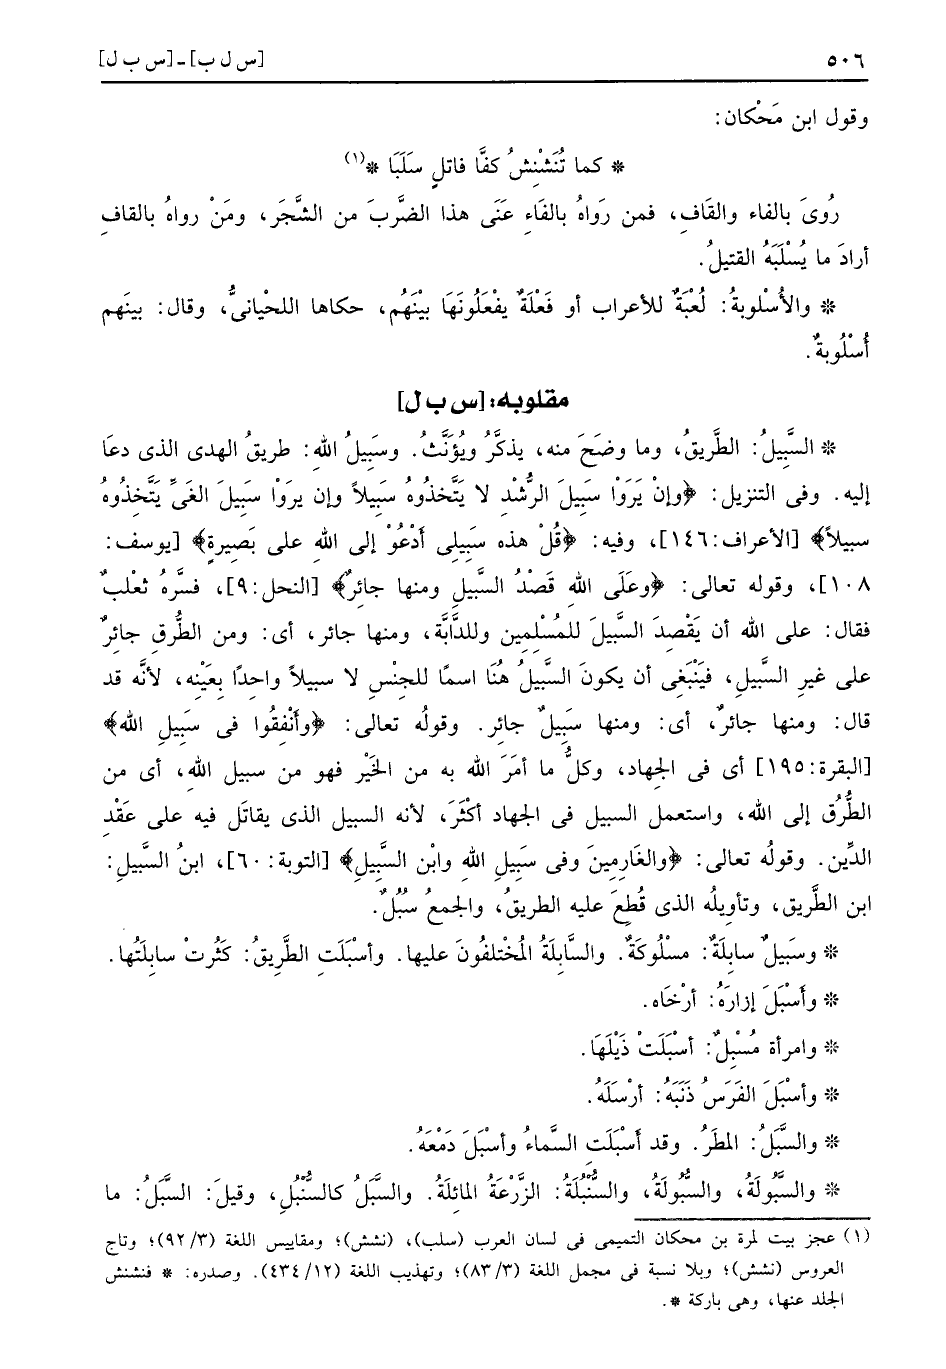 ٥٠٦
[س ل ب] - [س ب ل]
وقول ابن مَحْكان:
* كما تُنَشْنِشُ كفَّا فاتلٍ سَلَبَا *(١)
رُوىَ بالفاء والقَافِ، فمن رَواهُ بالفَاءِ عَنَى هذا الضَّربَ من الشَّجَر، ومَنْ رواهُ بالقافِ
أرادَ ما يُسْلَبَهُ القتيلُ.
* والأُسْلوبةُ: لُعبَةٌ للأعراب أو فَعْلَةٌ يفْعَلُونَهَا بيْنَهُم، حكاها اللحْيانىُّ، وقال: بينَهم
أُسْلُوبةٌ.
مقلوبه: [س ب ل]
* السَّبِيلُ: الطَّريقُ، وما وضَحَ منه، يذكَّرُ ويُؤَنَّثُ. وسَبِيلُ اللهِ: طريقُ الهدى الذى دعَا
إليه. وفى التنزيل: ﴿وإنْ يَرَوْا سَبِيلَ الرُّشْد لا يَتَّخذُوهُ سَبِيلاً وإن يرَوْا سَبِيلَ الغَىِّ يَتَّخذُوهُ
سبيلاً﴾ [الأعراف:١٤٦]، وفيه: ﴿قُلْ هذه سَبِيلى أَدْعُوْ إلى اللهِ على بَصِيرةٍ﴾ [يوسف:
١٠٨]، وقوله تعالى: ﴿وعَلَى اللهِ قَصْدُ السَّبيلِ ومنها جائرٌ﴾ [النحل:٩]، فسَّرهُ ثعْلبٌ
فقال: على الله أن يَقْصِدَ السَّبيلَ للمُسْلِمين وللدَّابَّة، ومنها جائر، أى: ومن الطُّرقِ جائرٌ
على غيرِ السَّبيلِ، فيَنْبَغِى أن يكونَ السَّبيلُ هُنَا اسمًا للجنْسِ لا سبيلاً واحدًا بعَيْنه، لأنَّه قد
قال: ومنها جائرٌ، أى: ومنها سَبِيلٌ جائر. وقولُه تعالى: ﴿وأَنْفِقُوا فى سَبِيلِ الله﴾
[البقرة:١٩٥] أى فى الجهاد، وكلُّ ما أمَرَ الله به من الخَيْر فهو من سبيل اللهِ، أى من
الطُّرُق إلى الله، واستعمل السبيل فى الجهاد أكْثَرَ، لأنه السبيل الذى يقاتَل فيه على عَقْد
الدِّين. وقولُه تعالى: ﴿والغَارِمِينَ وفى سَبِيلِ اللهِ وابْنِ السَّبِيلِ﴾ [التوبة:٦٠]، ابنُ السَّبيل:
ابن الطَّريق، وتأويلُه الذى قُطِعَ عليه الطريقُ، والجمعُ سُبُلٌ.
* وسَبِيلٌ سابِلةٌ: مسْلُوكَةٌ. والسَّابلَةُ المُخْتلفُونَ عليها. وأسْبَلَتِ الطَّريقُ: كَثُرتْ سابلَتُها.
* وأَسْبَلَ إزارَهُ: أرْخَاه.
* وامرأة مُسْبِلٌ: أسْبَلتْ ذَيْلَهَا.
* وأسْبَلَ الفَرَسُ ذَنَبَهُ: أرْسَلَهُ.
* والسَّبَلُ: المطَرُ. وقد أَسْبَلَتِ السَّماءُ وأسْبَلَ دَمْعَهُ.
* والسَّبُّولَةُ، والسُّبُّولَةُ، والسُّنْبُلَةُ: الزَّرْعَةُ المائلَةُ. والسَّبَلُ كالسُّنْبُلِ، وقيلَ: السَّبَلُ: ما
(١) عجز بيت لمرة بن محكان التميمى فى لسان العرب (سلب)، (نشش)؛ ومقاييس اللغة (٩٢/٣)؛ وتاج
العروس (نشش)؛ وبلا نسبة فى مجمل اللغة (٨٣/٣)؛ وتهذيب اللغة (٤٣٤/١٢). وصدره: * فنشنش
الجلد عنها، وهى باركة *.